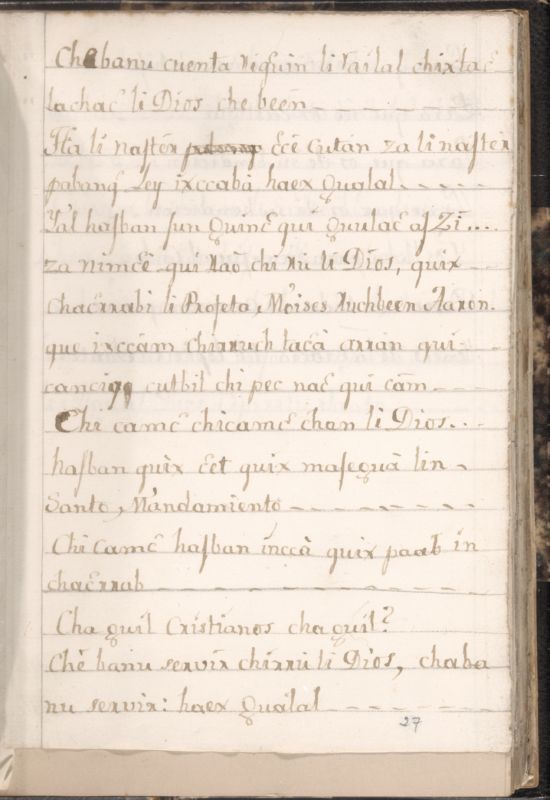 Chebanu cuenta riquin li railal chixtac̃
lachac̃ li Dios che been
Ha li naſter ec̃e cutan za li naſter
pabanq̃ Ley ixccaba haex Qualal
Yal haſban ſun Quinc̃ qui Quulac̃ aſ Zi...
za nimcẽ qui Nao chi Nu li Dios, quix
chac̃rrabi li Profeta, Moises Nuchbeen Aaron.
que ixccam chirruch tacâ arran qui
canci cutbil chi pec nac̃ qui cam
Chi camc̃ chicamc̃ chan li Dios...
haſban quix c̃et quix maſeguà lin
Santo, Mandamiento
Chi camc̃ haſban inccà quix paab in
chac̃rrab
Cha guil Cristianos cha guil?
Chè banu servir chirru li Dios, chaba
nu servir: haex Qualal
27